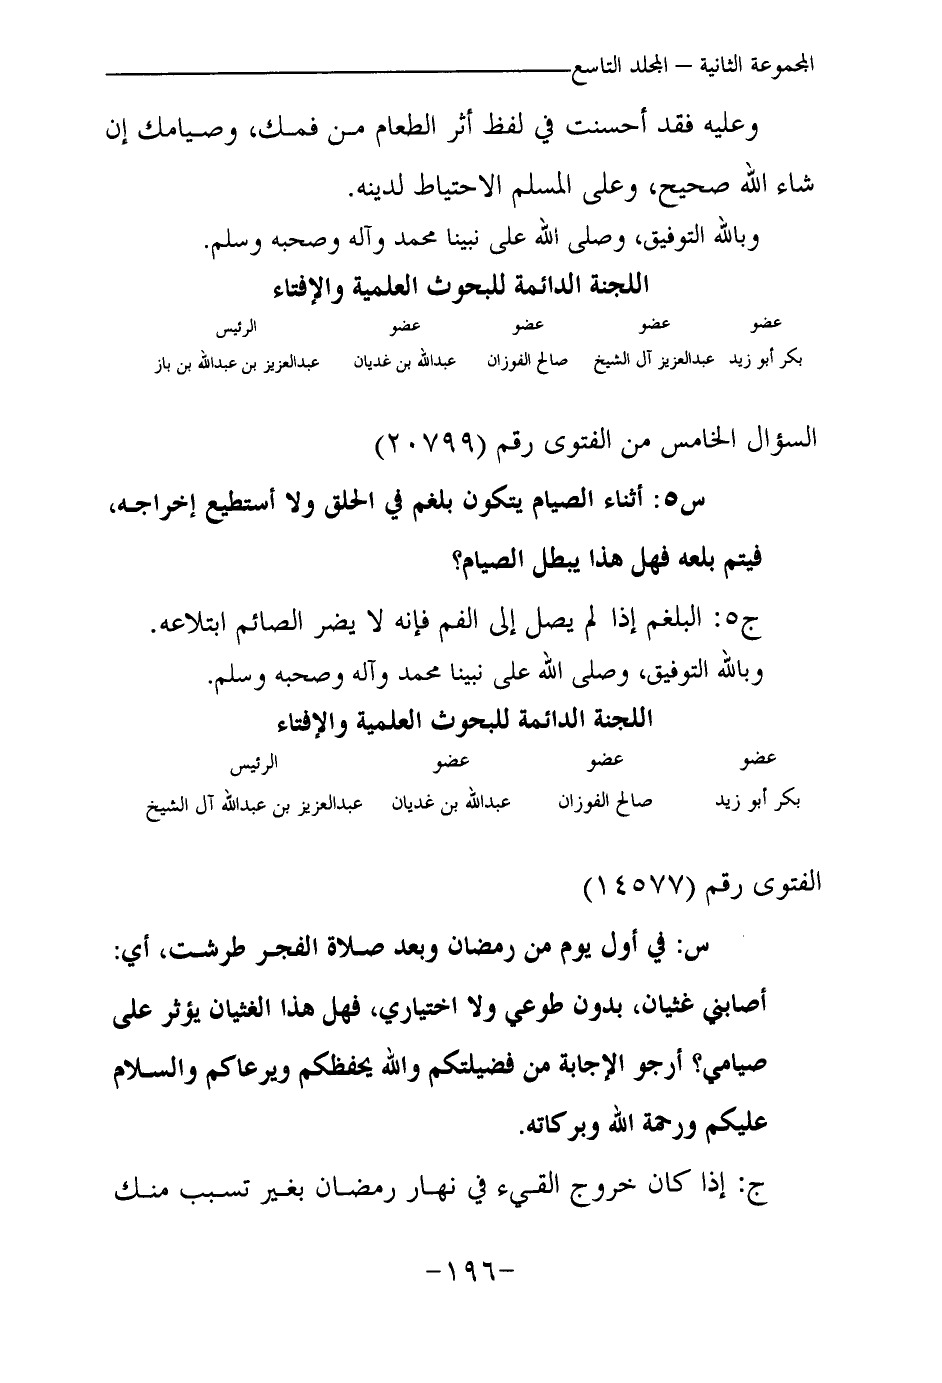 المجموعة الثانية – المجلد التاسع
وعليه فقد أحسنت في لفظ أثر الطعام من فمك، وصيامك إن
شاء الله صحيح، وعلى المسلم الاحتياط لدينه.
وبالله التوفيق، وصلى الله على نبينا محمد وآله وصحبه وسلم.
اللجنة الدائمة للبحوث العلمية والإفتاء
عضو عضو عضو عضو الرئيس
بكر أبو زيد عبدالعزيز آل الشيخ صالح الفوزان عبدالله بن غديان عبدالعزيز بن عبدالله بن باز
السؤال الخامس من الفتوى رقم (٢٠٧٩٩)
س٥: أثناء الصيام يتكون بلغم في الحلق ولا أستطيع إخراجه،
فيتم بلعه فهل هذا يبطل الصيام؟
ج٥: البلغم إذا لم يصل إلى الفم فإنه لا يضر الصائم ابتلاعه.
وبالله التوفيق، وصلى الله على نبينا محمد وآله وصحبه وسلم.
اللجنة الدائمة للبحوث العلمية والإفتاء
عضو عضو عضو الرئيس
بكر أبو زيد صالح الفوزان عبدالله بن غديان عبدالعزيز بن عبدالله آل الشيخ
الفتوى رقم (١٤٥٧٧)
س: في أول يوم من رمضان وبعد صلاة الفجر طرشت، أي:
أصابني غثيان، بدون طوعي ولا اختياري، فهل هذا الغثيان يؤثر على
صيامي؟ أرجو الإجابة من فضيلتكم والله يحفظكم ويرعاكم والسلام
عليكم ورحمة الله وبركاته.
ج: إذا كان خروج القيء في نهار رمضان بغير تسبب منك
–١٩٦–